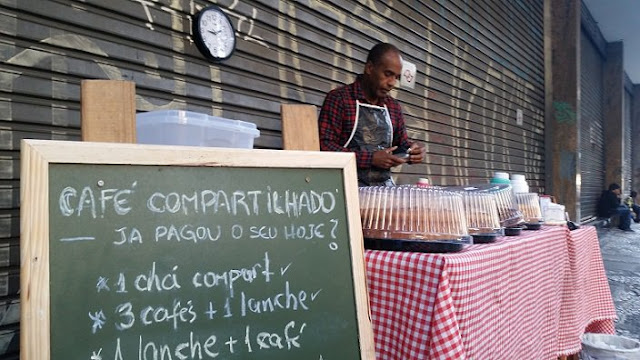 CAFÉ COMPARTILHADO
— JA PAGOU O SEU HOJE?
* 1 chá compart ✓
* 3 cafés + 1 lanche ✓
* 1 lanche + 1 café